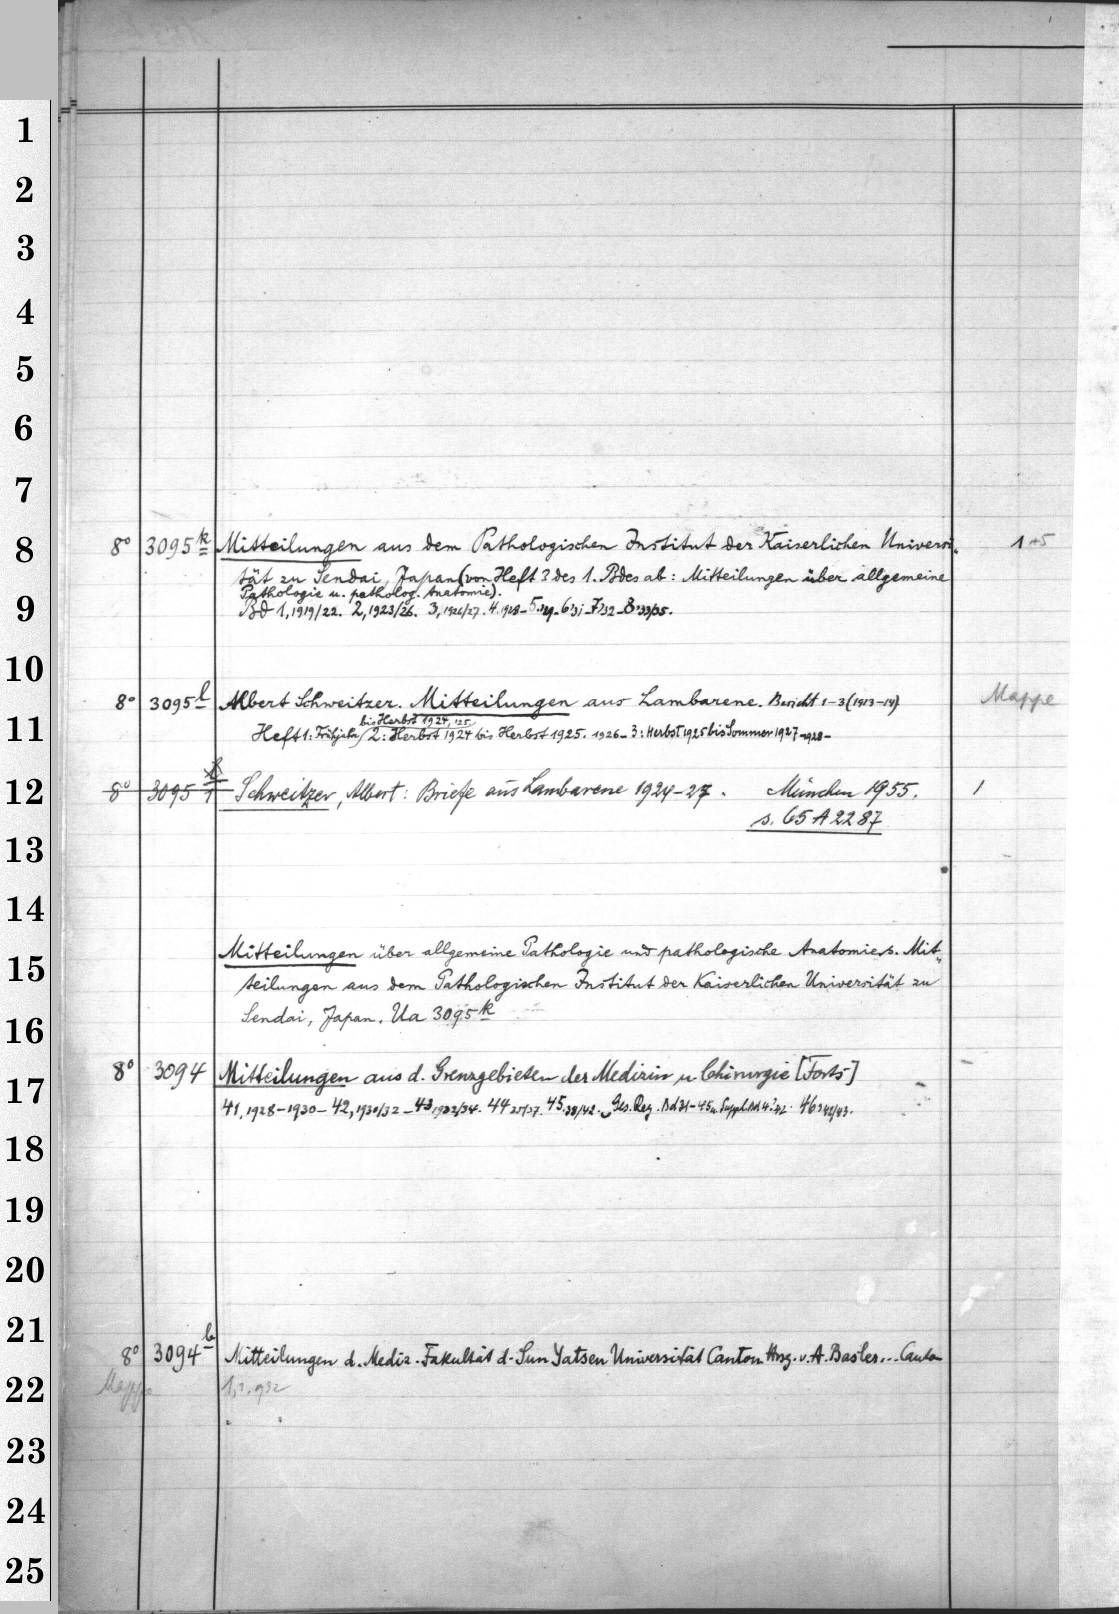 1
2
3
4
5
6
7
8
9
10
11
12
13
14
15
16
17
18
19
20
21
22
23
24
25
8° 3095 k Mitteilungen aus dem Pathologischen Institut der Kaiserlichen Universi- 1-5
tät zu Sendai, Japan (von Heft 3 des 1. Bdes ab: Mitteilungen über allgemeine
Pathologie u. patholog. Anatomie).
Bd 1, 1919/22. 2, 1923/26. 3, 1926/27. 4. 1928 - 5. - 6. - 7. 32 - 8. 33/35.
8° 3095 l Albert Schweitzer. Mitteilungen aus Lambarene. Bericht 1-3 (1913-14) Mappe
bis Herbst 1924, 125.
Heft 1: Frühjahr / 2: Herbst 1924 bis Herbst 1925. 1926 - 3: Herbst 1925 bis Sommer 1927 - 1928 -
8° 3095 Schweitzer, Albert: Briefe aus Lambarene 1924-27. München 1955. 1
s. 65 A 2287
Mitteilungen über allgemeine Pathologie und pathologische Anatomie, s. Mit-
teilungen aus dem Pathologischen Institut der Kaiserlichen Universität zu
Sendai, Japan. Ua 3095 k
8° 3094 Mitteilungen aus d. Grenzgebieten der Medizin u Chirurgie [Forts]
41, 1928-1930 - 42, 1930/32 - 43, 1932/34. 44 35/37. 45. 38/42. Ges. Reg. Bd 31-45 u. Suppl. Bd 46 1942/43.
8° 3094 b Mitteilungen d. Mediz. Fakultät d. Sun Yatsen Universität Canton Hrsg. v. A. Basler... Canton
Mappe 1, 932